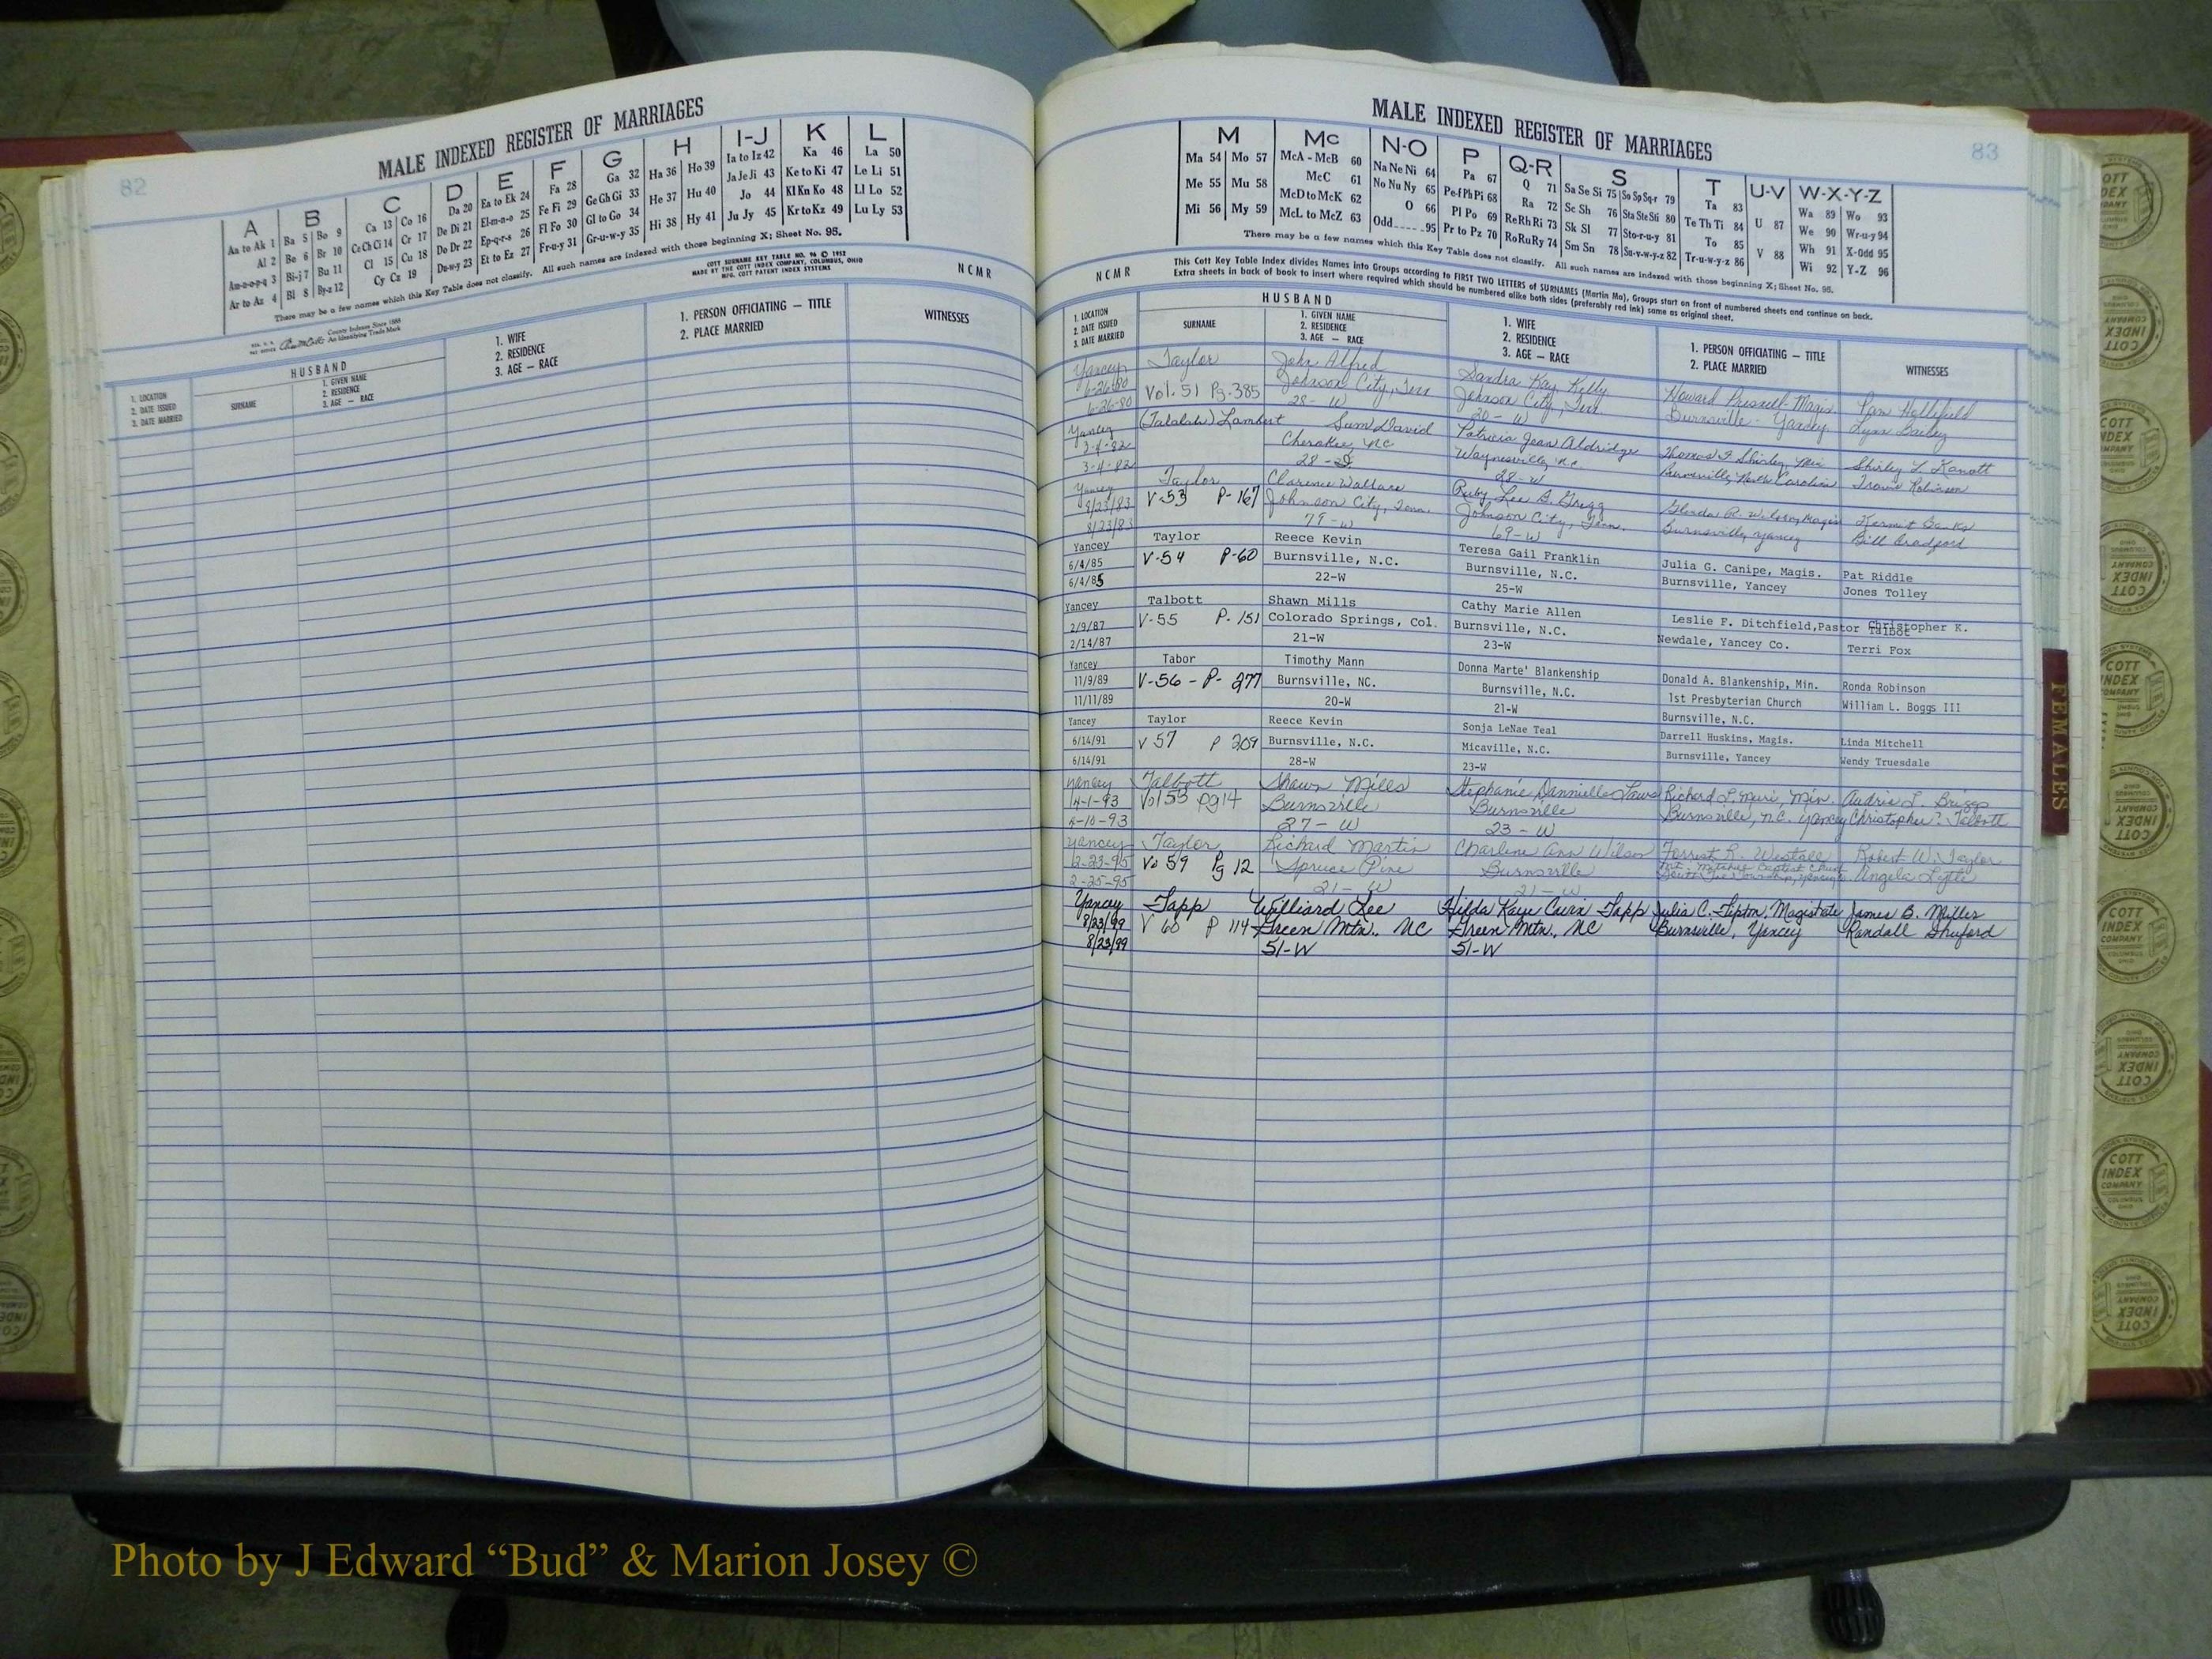 82
MALE INDEXED REGISTER OF MARRIAGES
A
Aa to Ak 1
Al 2
Am-n-o-p-q 3
Ar to Az 4
B
Ba 5 Bo 9
Be 6 Br 10
Bi-j 7 Bu 11
Bl 8 By-z 12
C
Ca 13 Co 16
Ce Ch Ci 14 Cr 17
Cl 15 Cu 18
Cy Cz 19
D
Da 20
De Di 21
Do Dr 22
Du-w-y 23
E
Ea to Ek 24
El-m-n-o 25
Ep-q-r-s 26
Et to Ez 27
F
Fa 28
Fe Fi 29
Fl Fo 30
Fr-u-y 31
G
Ga 32
Ge Gh Gi 33
Gl to Go 34
Gr-u-w-y 35
H
Ha 36 Ho 39
He 37 Hu 40
Hi 38 Hy 41
I-J
Ia to Iz 42
Ja Je Ji 43
Jo 44
Ju Jy 45
K
Ka 46
Ke to Ki 47
Kl Kn Ko 48
Kr to Kz 49
L
La 50
Le Li 51
Ll Lo 52
Lu Ly 53
There may be a few names which this Key Table does not classify. All such names are indexed with those beginning X; Sheet No. 95.
County Indexes Since 1888
An Identifying Trade Mark
COTT SURNAME KEY TABLE NO. 96 © 1952
MADE BY THE COTT INDEX COMPANY, COLUMBUS, OHIO
MFG. COTT PATENT INDEX SYSTEMS
NCMR
1. LOCATION
2. DATE ISSUED
3. DATE MARRIED
HUSBAND
SURNAME
1. GIVEN NAME
2. RESIDENCE
3. AGE — RACE
1. WIFE
2. RESIDENCE
3. AGE — RACE
1. PERSON OFFICIATING — TITLE
2. PLACE MARRIED
WITNESSES
MALE INDEXED REGISTER OF MARRIAGES
83
M
Ma 54 Mo 57
Me 55 Mu 58
Mi 56 My 59
Mc
McA - McB 60
McC 61
McD to McK 62
McL to McZ 63
N-O
Na Ne Ni 64
No Nu Ny 65
O 66
Odd 95
P
Pa 67
Pe-f Ph Pi 68
Pl Po 69
Pr to Pz 70
Q-R
Q 71
Ra 72
Re Rh Ri 73
Ro Ru Ry 74
S
Sa Se Si 75 So Sp Sq-r 79
Sc Sh 76 Sta Ste Sti 80
Sk Sl 77 Sto-r-u-y 81
Sm Sn 78 Su-v-w-y-z 82
T
Ta 83
Te Th Ti 84
To 85
Tr-u-w-y-z 86
U-V
U 87
V 88
W-X-Y-Z
Wa 89 Wo 93
We 90 Wr-u-y 94
Wh 91 X-Odd 95
Wi 92 Y-Z 96
There may be a few names which this Key Table does not classify. All such names are indexed with those beginning X; Sheet No. 95.
NCMR
This Cott Key Table Index divides Names into Groups according to FIRST TWO LETTERS of SURNAMES (Martin Ma), Groups start on front of numbered sheets and continue on back.
Extra sheets in back of book to insert where required which should be numbered alike both sides (preferably red ink) same as original sheet.
1. LOCATION
2. DATE ISSUED
3. DATE MARRIED
HUSBAND
SURNAME
1. GIVEN NAME
2. RESIDENCE
3. AGE — RACE
1. WIFE
2. RESIDENCE
3. AGE — RACE
1. PERSON OFFICIATING — TITLE
2. PLACE MARRIED
WITNESSES
Yancey Taylor John Alfred Sandra Kay Kelly Howard Presnell-Magis. Pam Hollifield
6-26-80 Vol. 51 Pg. 385 Johnson City, Tenn Johnson City, Tenn Burnsville - Yancey Lynn Bailey
6-26-80 28- W 20- W
Yancey Lambert Sam David Patricia Jean Aldridge Thomas F. Shirley, Min Shirley L. Kanott
3-4-82 Cherokee, NC Waynesville, n.c. Burnsville, North Carolina Travis Robinson
3-4-82 28- 28-W
Yancey Taylor Clarence Wallace Ruby Lee B. Gregg Glenda R. Wilson, Magis Kermit Banks
8/23/83 V-53 P-167 Johnson City, Tenn. Johnson City, Tenn. Burnsville, Yancey Bill Bradford
8/23/83 79-W 69-W
Yancey Taylor Reece Kevin Teresa Gail Franklin Julia G. Canipe, Magis. Pat Riddle
6/4/85 V-54 P-60 Burnsville, N.C. Burnsville, N.C. Burnsville, Yancey Jones Tolley
6/4/85 22-W 25-W
Yancey Talbott Shawn Mills Cathy Marie Allen Leslie F. Ditchfield,Pastor Christopher K. Talbot
2/9/87 V-55 P-151 Colorado Springs, Col. Burnsville, N.C. Newdale, Yancey Co. Terri Fox
2/14/87 21-W 23-W
Yancey Tabor Timothy Mann Donna Marte' Blankenship Donald A. Blankenship, Min. Ronda Robinson
11/9/89 V-56 - P-277 Burnsville, NC. Burnsville, N.C. 1st Presbyterian Church William L. Boggs III
11/11/89 20-W 21-W Burnsville, N.C.
Yancey Taylor Reece Kevin Sonja LeNae Teal Darrell Huskins, Magis. Linda Mitchell
6/14/91 V 57 P 209 Burnsville, N.C. Micaville, N.C. Burnsville, Yancey Wendy Truesdale
6/14/91 28-W 23-W
Yancey Talbott Shawn Mills Stephanie Dannielle Laws Richard L. Muri, Min. Audria L. Briggs
4-1-93 Vol 53 pg 14 Burnsville Burnsville Burnsville, n.c. Yancey Christopher Talbott
4-10-93 27- W 23 - W
Yancey Taylor Richard Martin Charlene Ann Wilson Forrest R. Westall Robert W. Taylor
2-23-95 Vo 59 Pg 12 Spruce Pine Burnsville Angela Lytle
2-25-95 21- W 21- W
Yancey Tapp Williard Lee Hilda Kaye Tapp Julia C. Tipton, Magistrate James B. Miller
8/23/99 V 60 P 114 Green Mtn., NC Green Mtn., NC Burnsville, Yancey Randall Shuford
8/23/99 51-W 51-W
FEMALES
COTT INDEX COMPANY
Photo by J Edward “Bud” & Marion Josey ©